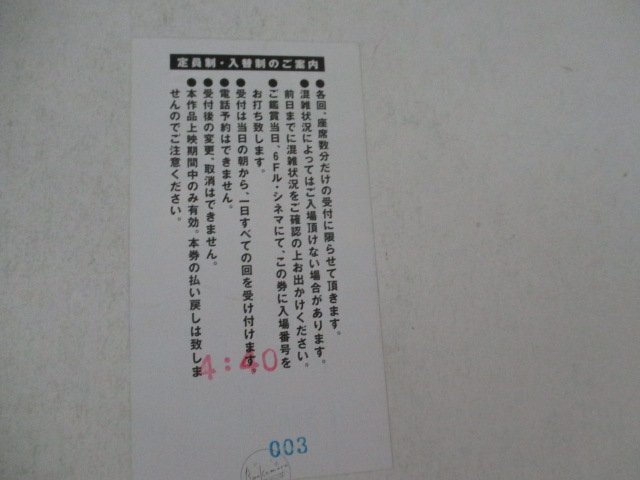 定員制・入替制のご案内
●各回、座席数分だけの受付に限らせて頂きます。
●混雑状況によってはご入場頂けない場合があります。
前日までに混雑状況をご確認の上お出かけください。
●ご鑑賞当日、6Fル・シネマにて、この券に入場番号を
お打ち致します。
●受付は当日の朝から、一日すべての回を受け付けます。
●電話予約はできません。
●受付後の変更、取消はできません。
●本作品上映期間中のみ有効。本券の払い戻しは致しま
せんのでご注意ください。
4:40
003